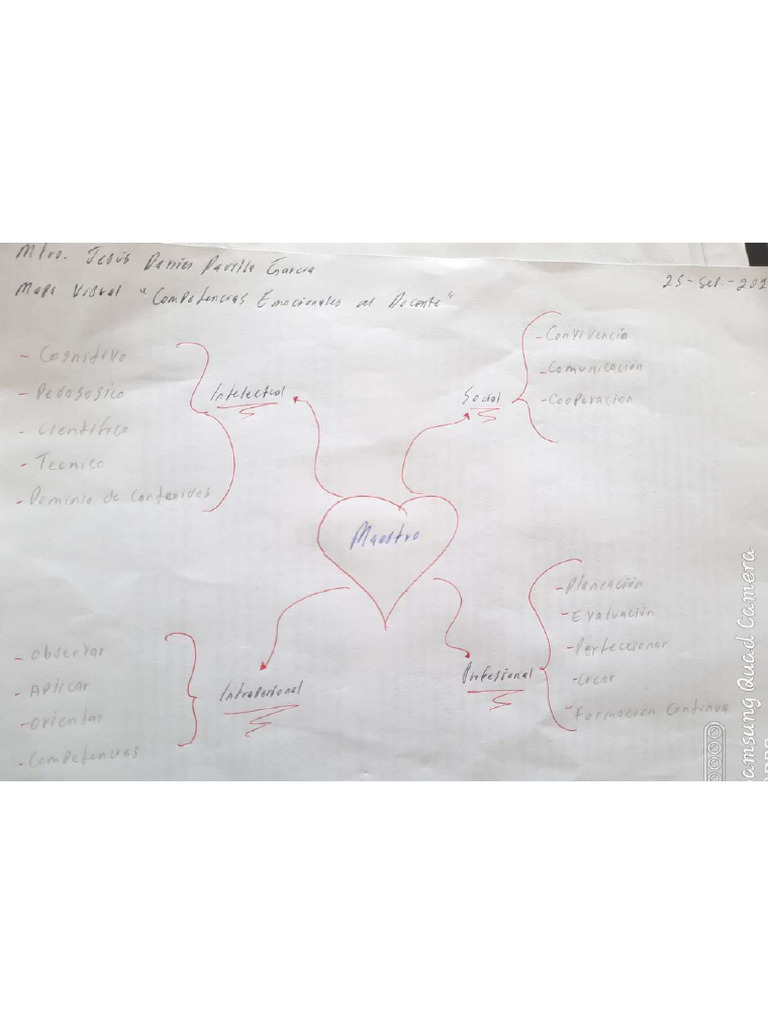 Mtro. Jesús García
25-Sep.-202
Mapa Visual "Competencias Emocionales del Docente"
- Cognitivo
- Pedagogico
- Científico
- Tecnico
- Dominio de Contenidos
Intelectual
Social
- Convivencia
- Comunicación
- Cooperación
Maestro
- Observar
- Aplicar
- Orientar
- Competencias
Intrapersonal
Profesional
- Planeación
- Evaluación
- Perfeccionar
- Crear
- Formación Continua
amsung Quad Camera